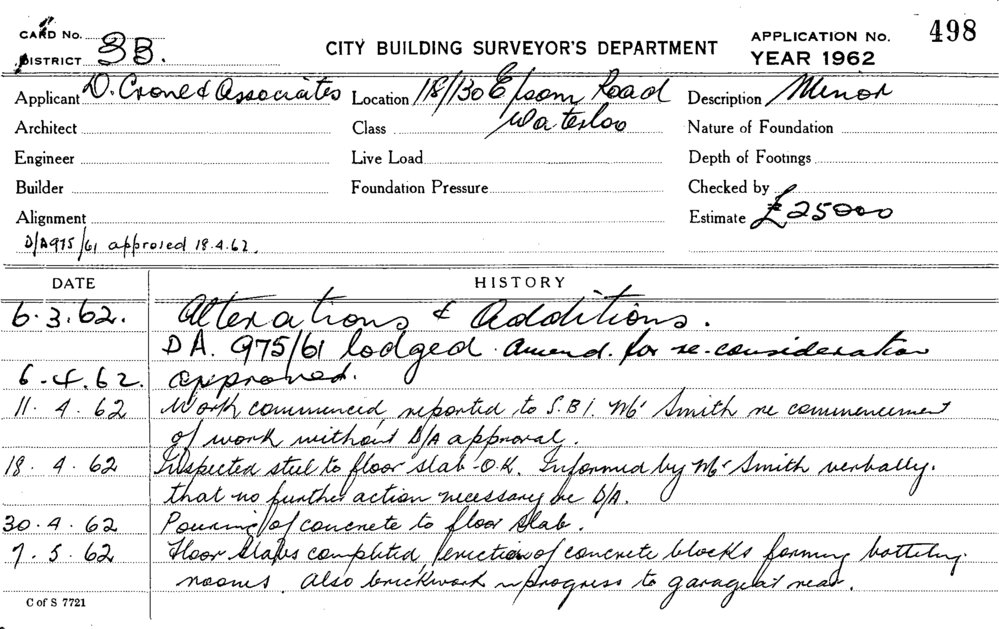 CARD No.
DISTRICT 3B.
CITY BUILDING SURVEYOR'S DEPARTMENT
APPLICATION No. 498
YEAR 1962
Applicant D. Crone & Associates Location 118/130 Epsom Road Description Minor
Architect Class Waterloo Nature of Foundation
Engineer Live Load Depth of Footings
Builder Foundation Pressure Checked by
Alignment Estimate £25000
D/A 975/61 approved 18.4.62.
DATE HISTORY
6.3.62. Alterations & Additions.
DA. 975/61 lodged. amend. for re-consideration
6.4.62. approved.
11.4.62 Work commenced, reported to S.B.I. Mr Smith re commencement
of work without D/A approval.
18.4.62 Inspected steel to floor slab - O.K. Informed by Mr Smith verbally.
that no further action necessary re D/A.
30.4.62 Pouring of concrete to floor slab.
7.5.62 Floor slabs completed, erection of concrete blocks forming bottling
rooms. also brickwork in progress to garage at rear.
C of S 7721